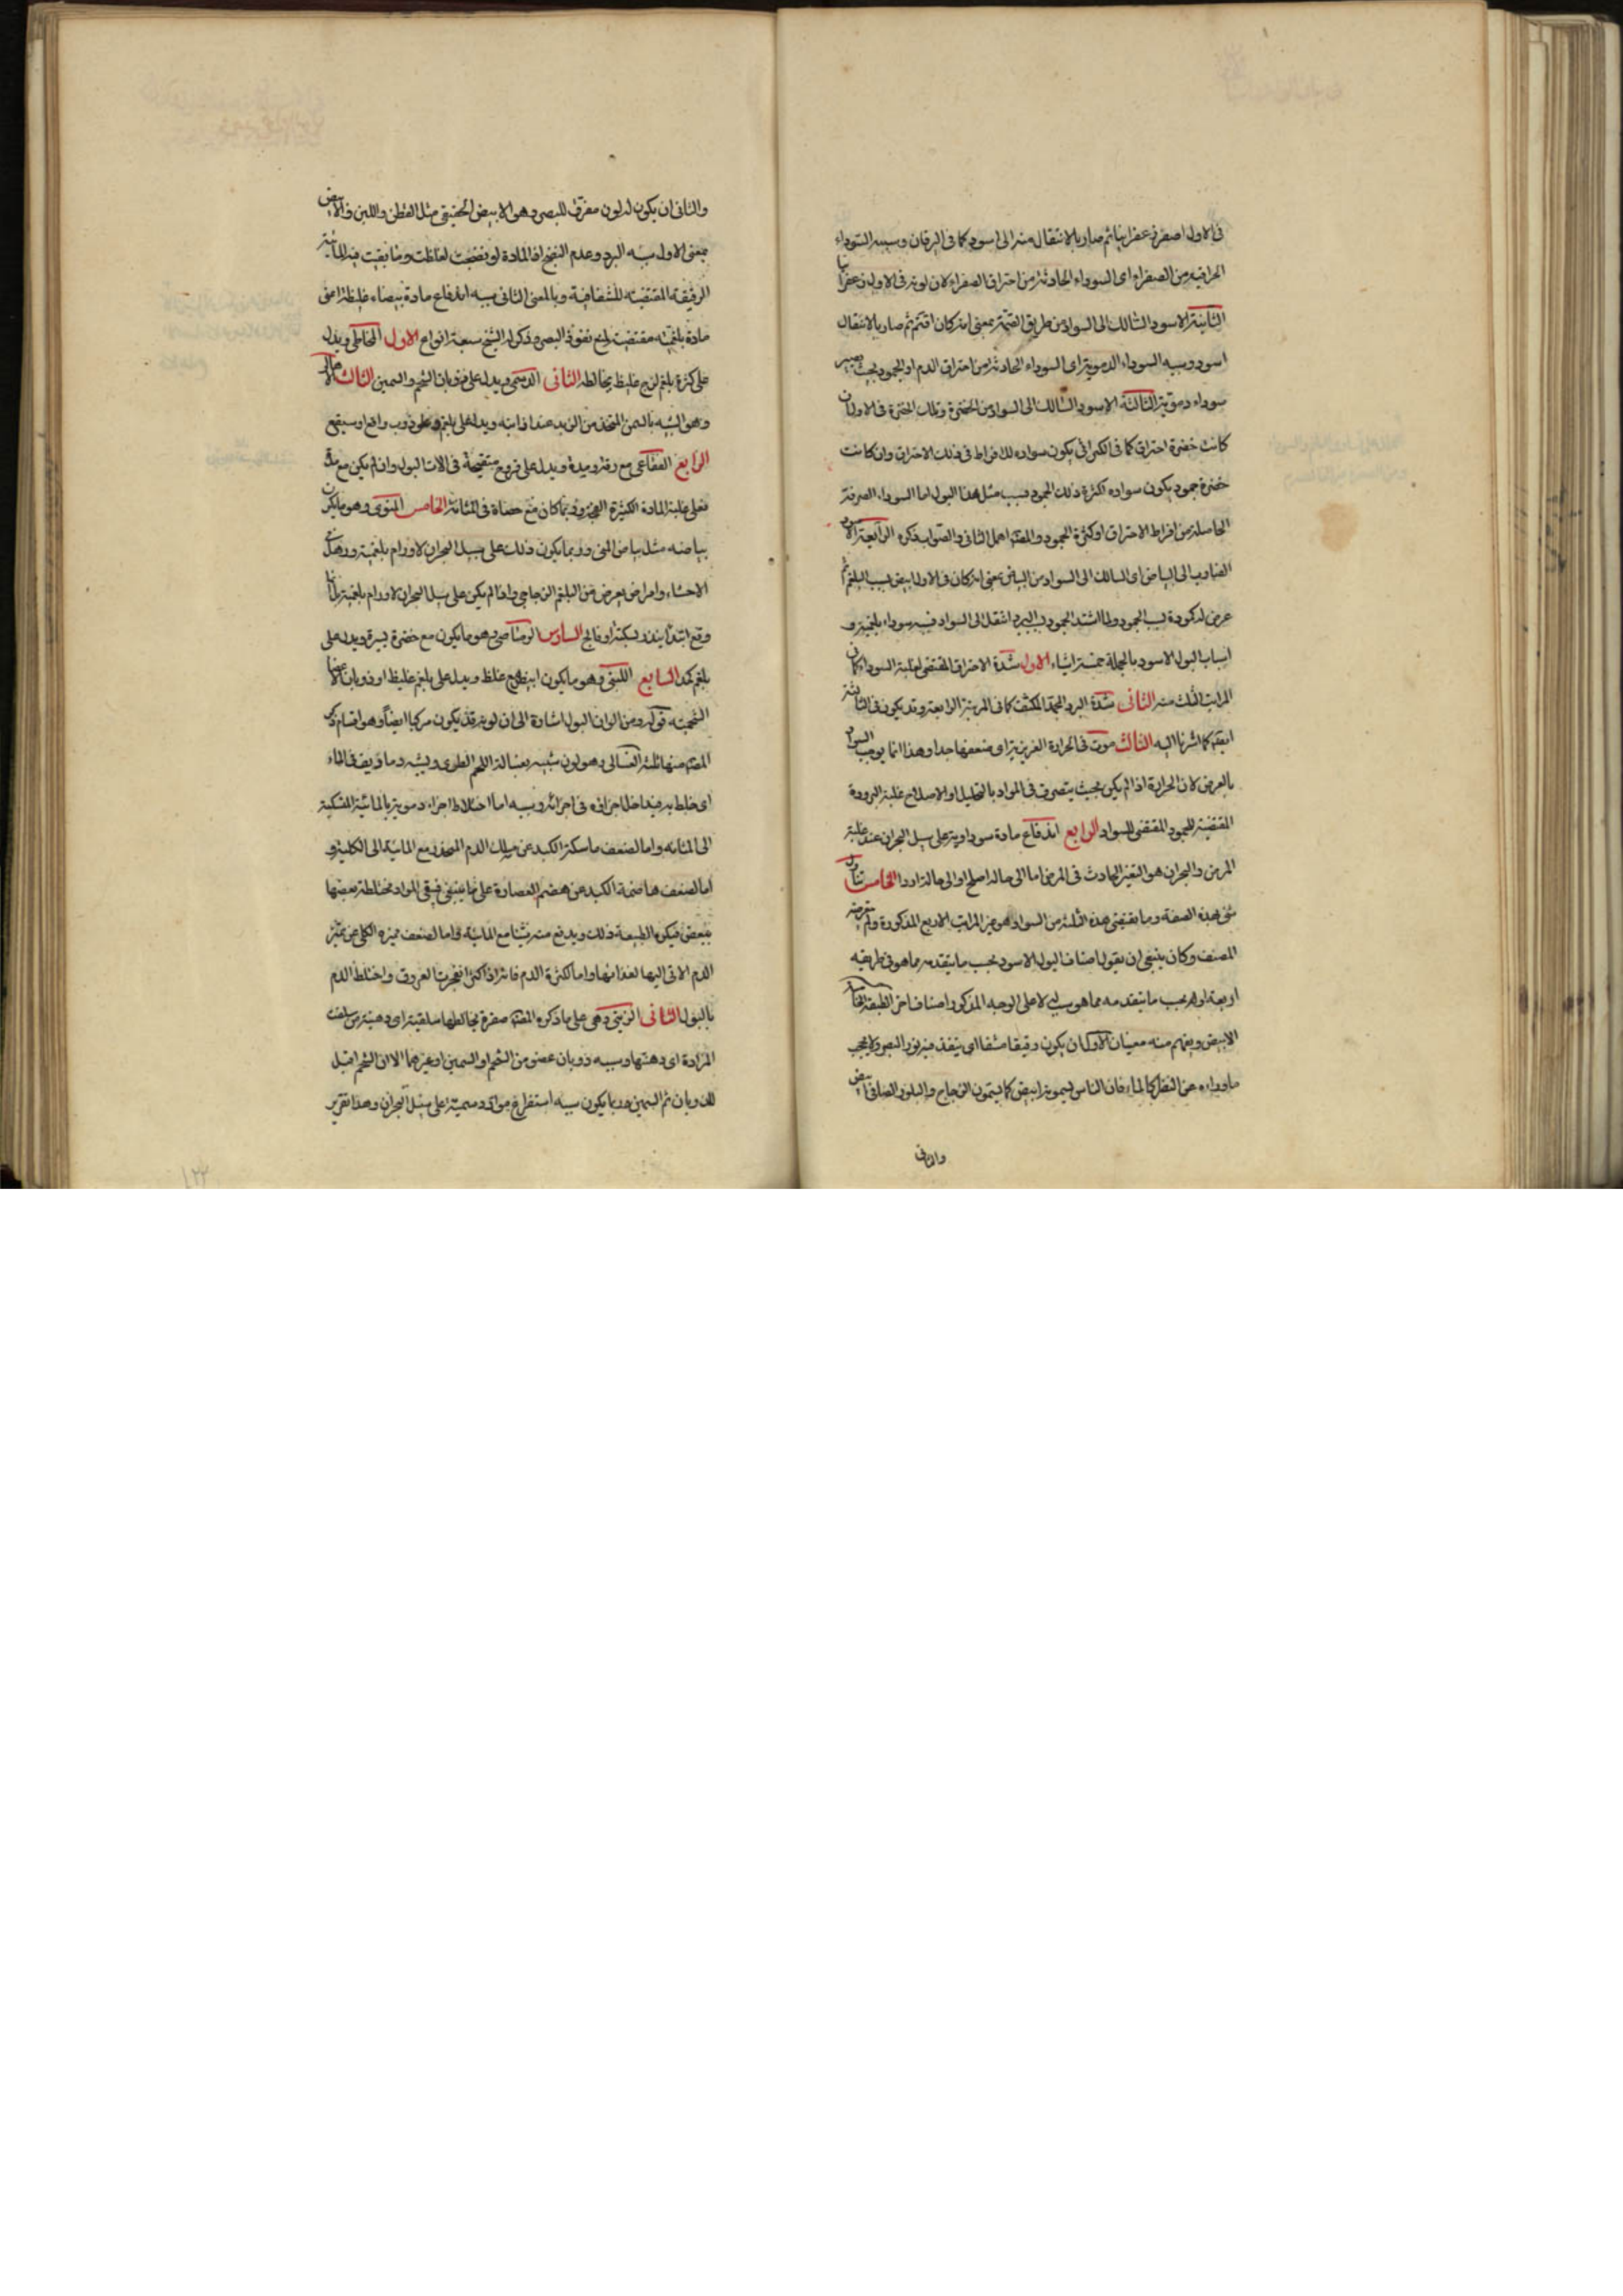 فى الاول اصفر زعفرانيا ثم صار بالانتقال منه الى اسود كما فى اليرقان وسببه السوداء
الحراقية من الصفراء اى السوداء الحادثة من احتراق الصفراء لان لونه فى الاول زعفرانيا
الثانية الاسود السالك الى السواد من طريق القتمة بمعنى انه كان اقتم ثم صار بالانتقال
اسود وسببه السوداء الدموية اى السوداء الحادثة من احتراق الدم او الجمود بحيث يصير
سوداء دموية الثالثة الاسود السالك الى السواد من الخضرة وتلك الخضرة فى الاول ان
كانت خضرة احتراق كما فى الكراثى يكون سواده للافراط فى ذلك الاحتراق وان كانت
خضرة جمود يكون سواده لكثرة ذلك الجمود فسبب مثل هذا البول اما السوداء الصرفة
الحاصلة من افراط الاحتراق او كثرة الجمود والمصنف اهمل الثانى والصواب ذكره الرابعة الاسود
الضارب الى البياض اى السالك الى السواد من البياض بمعنى انه كان فى الاول ابيض لسبب البلغم ثم
عرض له كمودة بسبب الجمود ولما اشتد الجمود بالبرد انتقل الى السواد فسببه سوداء بلغمية و
اسباب البول الاسود بالجملة خمسة اشياء الاول شدة الاحتراق المقتضى لغلبة السوداء كما فى
المراتب الثلث منه الثانى شدة البرد المجمد المكثف كما فى المرتبة الرابعة وقد يكون فى الثالثة
ايضا كما اشرنا اليه الثالث موت فى الحرارة الغريزية اى ضعفها جدا وهذا انما يوجب السواد
بالعرض لان الحرارة اذا لم يكن بحيث يتصرف فى المواد بالتحليل او الاصلاح غلبة البرودة
المقتضية للجمود المقتضى للسواد الرابع اندفاع مادة سوداوية على سبيل البحران عند غلبة
المرض والبحران هو التغير الحادث فى المرض اما الى حالة اصلح او الى حالة اردا الخامس تناول
شئ بهذه الصفة وما يقتضى هذه الثلثة من السواد هو غير المراتب الاربع المذكورة ولم يتعرضه
المصنف وكان ينبغى ان يقول اصناف البول الاسود بحسب ما يتقدمه مما هو فى طريقه
اربعة او له بحسب ما يتقدمه مما هو سالك لا على الوجه المذكور اصناف اخر الطبقة الخامسة
الابيض ويفهم منه معنيان الاول ان يكون رقيقا مشفا اى ينفذ فيه نور البصر ولا يحجب
ما وراءه عن النظر كالماء فان الناس يسمونه ابيض كما يسمون الزجاج والبلور الصافى ابيض
والثانى
والثانى ان يكون له لون مفرق للبصر وهو الابيض الحقيقى مثل القطن واللبن والابيض
بمعنى الاول سببه البرد وعدم النضج اذ المادة لو نضجت لغلظت وما بقيت فيه المائية
الرقيقة المقتضية للشفافية وبالمعنى الثانى سببه اندفاع مادة بيضاء غليظة اعنى
مادة بلغمية مقتضية لمنع نفوذ البصر وذكر له الشيخ سبعة انواع الاول المخاطى ويدل
على كثرة بلغم لزج غليظ يخالطه الثانى الدسمى ويدل على ذوبان الشحم والسمين الثالث الاهالى
وهو الشبيه بالسمن المتخذ من الزبد عند اذابته ويدل على بلغم وعلى ذوب واقع او سيقع
الرابع الفقاعى مع رقة ومدة ويدل على قروح متقيحة فى الات البول وان لم يكن مع مدة
فعلى غلبة المادة الكثيرة الفجة وربما كان مع حصاة فى المثانة الخامس المنوى وهو ما يكون
بياضه مثل بياض المنى وربما يكون ذلك على سبيل البحران لاورام بلغمية ورهل فى
الاحشاء وامراض يعرض من البلغم الزجاجى واذا لم يكن على سبيل البحران لاورام بلغمية بل انما
وقع ابتداء ينذر بسكتة او فالج السادس الرصاصى وهو ما يكون مع خضرة يسيرة ويدل على
بلغم كمد السابع اللبنى وهو ما يكون ابيض مع غلظ ويدل على بلغم غليظ او ذوبان الاعضاء
الشحمية قوله ومن الوان البول اشارة الى ان لونه قد يكون مركبا ايضا وهو اقسام ذكر
المصنف منها ثلثة الغسالى وهو لون شبيه بغسالة اللحم الطرى ويشبه دما ديف فى الماء
اى خلط به فيداخل اجزائه فى اجزائه وسببه اما اختلاط اجزاء دموية بالمائية المنسكبة
الى المثانه واما لضعف ماسكة الكبد عن مسك الدم المنحدر مع المائية الى الكلية و
اما لضعف هاضمة الكبد عن هضم العصارة على ما ينبغى فيبقى المواد مختلطة بعضها
ببعض فيكره الطبيعة ذلك ويدفع منه شيئا مع المائية واما لضعف مميزه الكلى عن تميز
الدم الاتى اليها لغذائها واما لكثرة الدم فانه اذا كثر انفجرت العروق واختلط الدم
بالبول الثانى الزيتى وهى على ما ذكره المصنف صفرة يخالطها سلقية اى دهنية من سلقت
المزادة اى دهنتها وسببه ذوبان عضو من الشحم او السمين او غيرهما الا ان الشحم اقبل
للذوبان ثم السمين وربما يكون سببه استفراغ مواد دسمية على سبيل البحران وهذا تقرير
١٢٢